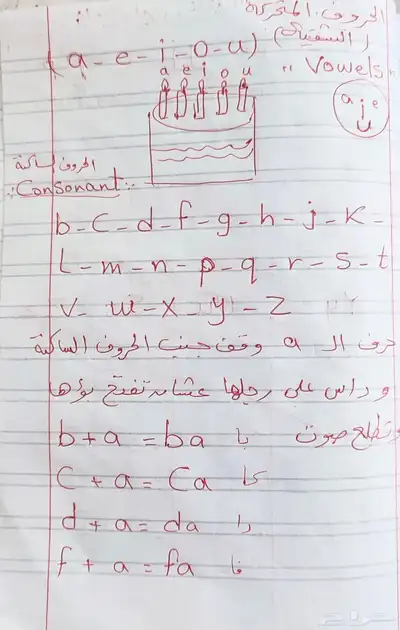 الحروف المتحركة
(الشقية)
(a - e - i - o - u)
"Vowels"
a e i o u
a e
i
u
الحروف الساكنة
:: Consonant ::
b - c - d - f - g - h - j - k -
L - m - n - p - q - r - s - t
v - w - x - y - z
حرف الـ a وقف جنب الحروف الساكنة
وداس على رجلها عشان تفتح بؤها
وتطلع صوت
b + a = ba با
C + a = Ca كا
d + a = da دا
f + a = fa فا